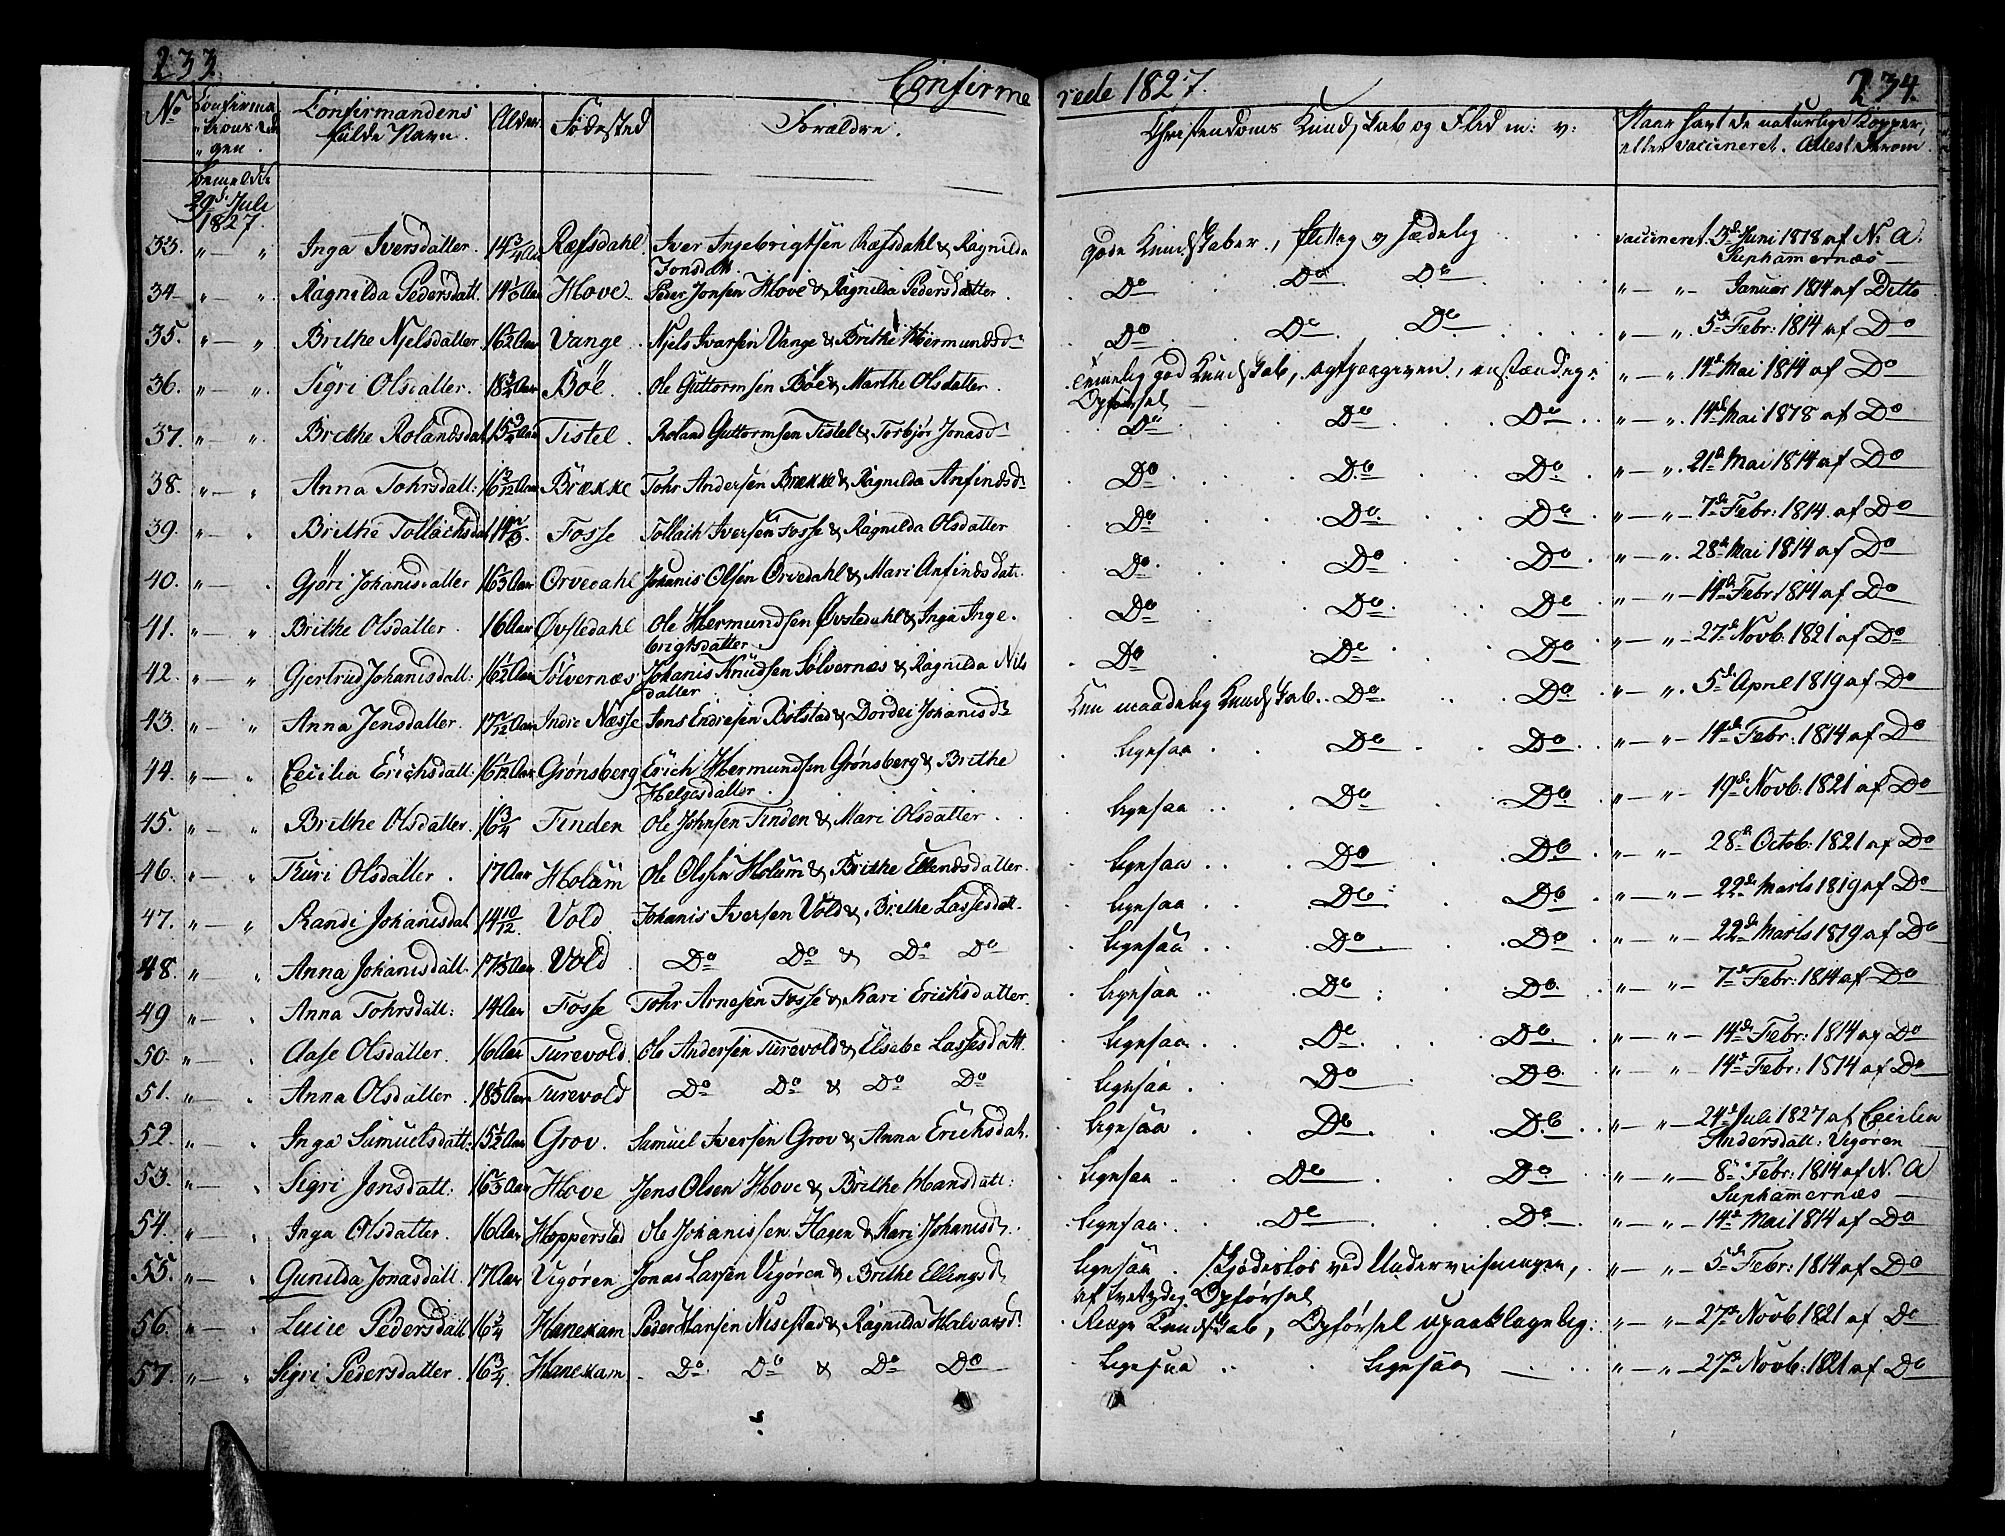 233. Confirmerede 1827. 234.
No Confirmationsdagen. Confirmandens fulde Navn. Alder Fødested Forældre. Christendoms Kundskab og Flid m: v: Naar havt de naturlige Kopper, eller vaccineret. Attest derom.
bemeldte 29d Juli 1827.
33. " — " Inga Iversdatter. 14 3/4 Aar Refsdahl Iver Ingebrigtsen Refsdahl & Ragnilda Jonsdatt. gode Kundskaber, flittig og sædelig vaccineret. 3d Juni 1818 af N: A: Suphamernæs —
34 " — " Ragnilda Pedersdatt. Hove Peder Jonsen Hove & Ragnilda Pedersdatter. Do Do Do " — " Januar 1814 af Ditto
35. " — " Brithe Njelsdatter 16 1/2 Aar Vange Njels Ivarsen Vange & Brithe Hermundsd. Do Do Do " — " 5d Febr: 1814 af Do
36. " — " Sigri Olsdatter. Böe. Ole Guttormsen Böe & Marthe Olsdatter. temelig god Kundskab, agtpaagiven, anstændig Opförsel — " — " 14d Mai 1814 af Do
37. " — " Brithe Rolandsdat 15 3/4 Aar Tistel. Roland Guttormsen Tistel & Torbjör Jonasd. Do Do Do " — " 14d Mai 1818 af Do
38. " — " Anna Tohrsdatt: Brække Tohr Andersen Brække & Ragnilda Anfindsd. Do Do Do " — " 21d Mai 1814 af Do
39. " — " Brithe Tollachsdat Fosse Tollach Iversen Fosse & Ragnilda Olsdatter Do Do Do " — " 7d Febr: 1814 af Do
40. " — Gjöri Johanisdatter Orvedahl Johanis Olsen Orvedahl & Mari Anfindsdatt. Do Do Do " — " 28d Mai 1814 af Do
41. " — " Brithe Olsdatter. 16 Aar Øvstedahl Ole Hermundsen Øvstedahl & Inga Ingebrigtsdatter. Do Do Do " — " 14d Febr 1814 af Do
42. " — " Gjertrud Johanisdatt: 16 1/2 Aar Sølvernæs Johanis Knudsen Sølvernæs & Ragnilda Nilsdatter Do Do Do " — " 27d Novb. 1821 af Do
43. " — " Anna Jensdatter. Indre Næsse Jens Endresen Bolstad & Dordei Johanisd. Kun maadelig Kundskab. Do Do " — " 5d April 1819 af Do
44. " — " Cecilia Erichsdatt: Grønsberg Erich Hermundsen Grønsberg & Brithe Helgesdatter. ligesaa Do Do " — " 14d Febr: 1814 af Do
45. " — " Brithe Olsdatter. 16 3/4 Finden Ole Johnsen Finden & Mari Olsdatter. ligesaa Do Do " — " 19d Novb: 1821 af Do
46. " — " Turi Olsdatter. 17 Aar Holum Ole Olsen Holum & Brithe Ellendsdatter. ligesaa Do Do " — " 28d Octob: 1821 af Do
47. " — " Randi Johanisdat 14 10/12. Vold Johanis Iversen Vold & Brithe Lassesdatt. ligesaa Do Do " — " 22d Marts 1819 af Do
48. " " Anna Johanisdatt. Vold Do Do & Do Do ligesaa Do Do " — " 22d Marts 1819 af Do
49 " — Anna Tohrsdatt: 14 Aar Fosse Tohr Arnesen Fosse & Kari Erichsdatter. ligesaa Do Do " — " 7d Febr: 1814 af Do
50. " — Aase Olsdatter. 16 Aar Turevold. Ole Andersen Turevold & Elsebe Lassesdatt. ligesaa Do Do " — " 14d Febr: 1814 af Do
51. " — Anna Olsdatter. Turevold Do Do & Do Do ligesaa Do Do " — " 14d Febr: 1814 af Do
52. " — Inga Samuelsdatt: 15 1/2 Aar Grov. Samuel Iversen Grov & Anna Erichsdat. ligesaa Do Do " — " 24d Juli 1827 af Cecilia Andersdatt: Vigören
53. " — Sigri Jensdatt: Hove Jens Olsen Hove & Brithe Hansdatt: ligesaa Do Do " — " 8d Febr: 1814 af N. A Suphamernæs —
54. " Inga Olsdatter. 16 Aar Hopperstad Ole Johanissen Hagen & Kari Johanisd. ligesaa. Do Do " — " 14d Mai 1814 af Do
55. " — Gunilda Jonasdatt. 17 Aar Vigören Jonas Larsen Vigören & Brithe Ellingsd. ligesaa skjødeslös ved Underviisningen, af tvetydig Opförsel " — " 5d Febr: 1814 af Do
56. " — Lucie Pedersdatt 16 3/4 Hanekam Peder Hansen Nisestad & Ragnilda Halvarsd. Ringe Kundskab, Opförsel upaaklagelig: " — " 27d Novb 1821 af Do
57. " — " Sigri Pedersdatter. 16 3/4. Hanekam Do Do & Do Do ligesaa ligesaa " — " 27d Novb: 1821 af Do